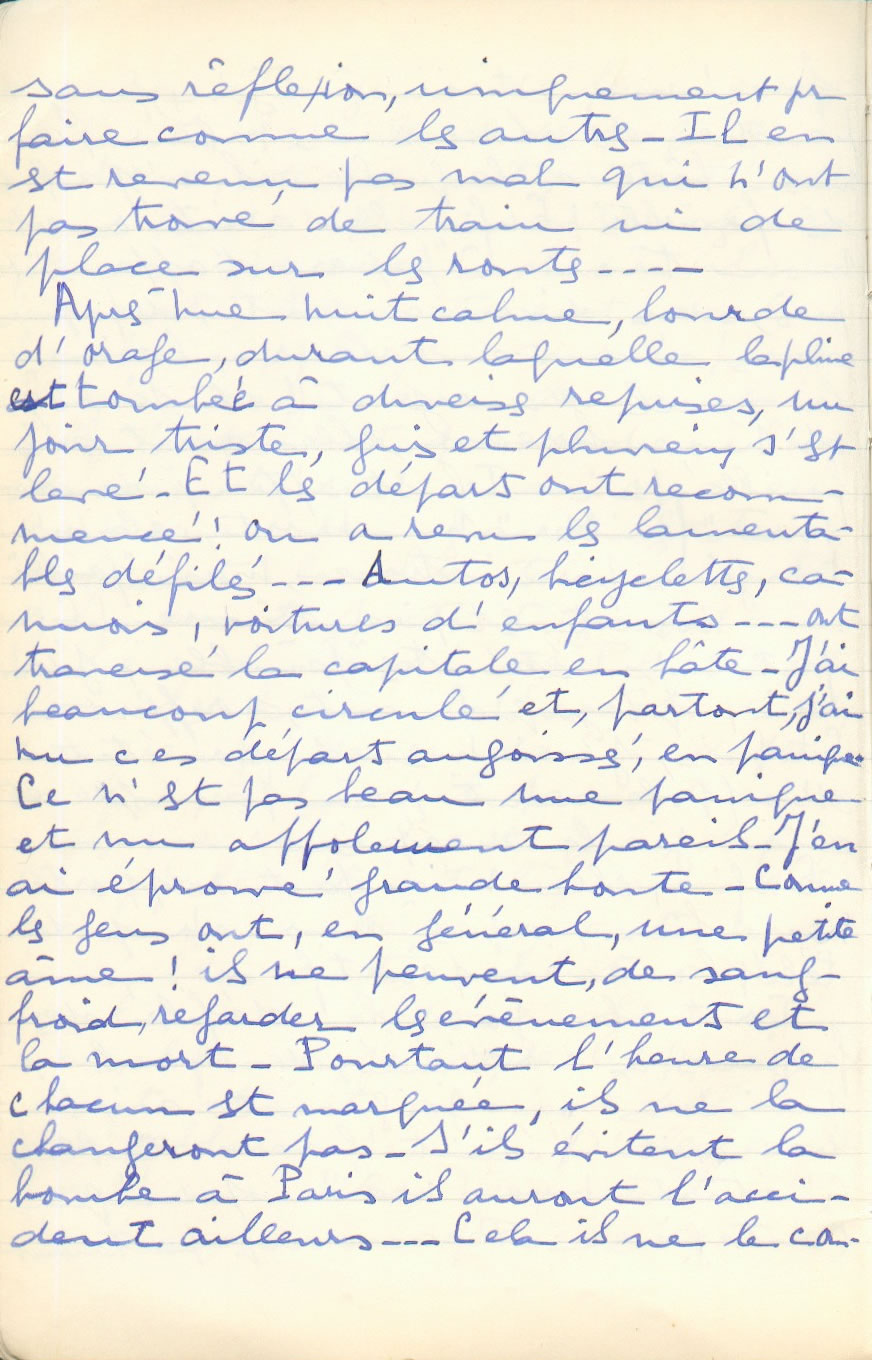 sans réflexion, uniquement pr
faire comme les autres - Il en
est revenu pas mal qui n'ont
pas trouvé de train ni de
place sur les routes ----
Après une nuit calme, lourde
d'orage, durant laquelle la pluie
est tombée à diverses reprises, un
jour triste, gris et pluvieux s'est
levé - Et les départs ont recom-
mencé! on a revu les lamenta-
bles défilés --- Autos, bicyclettes, ca-
mions, voitures d'enfants --- ont
traversé la capitale en hâte - J'ai
beaucoup circulé et, partout, j'ai
vu ces départs angoissés, en panique.
Ce n'est pas beau une panique
et un affolement pareils - J'en
ai éprouvé grande honte - Comme
les gens ont, en général, une petite
âme! ils ne peuvent, de sang-
froid, regarder les évènements et
la mort - Pourtant l'heure de
chacun est marquée, ils ne la
changeront pas - S'ils évitent la
bombe à Paris ils auront l'acci-
dent ailleurs --- Cela ils ne le con-